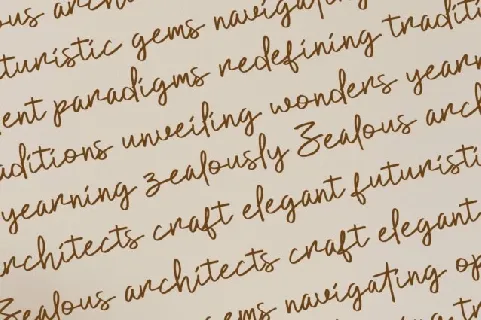 ous arch
turistic gems navigat
ent paradigms redefining traditi
aditions unveiling wonders yearn
yearning zealously Zealous arch
rchitects craft elegant futuristi
Zealous architects craft elegant
ems navigating op